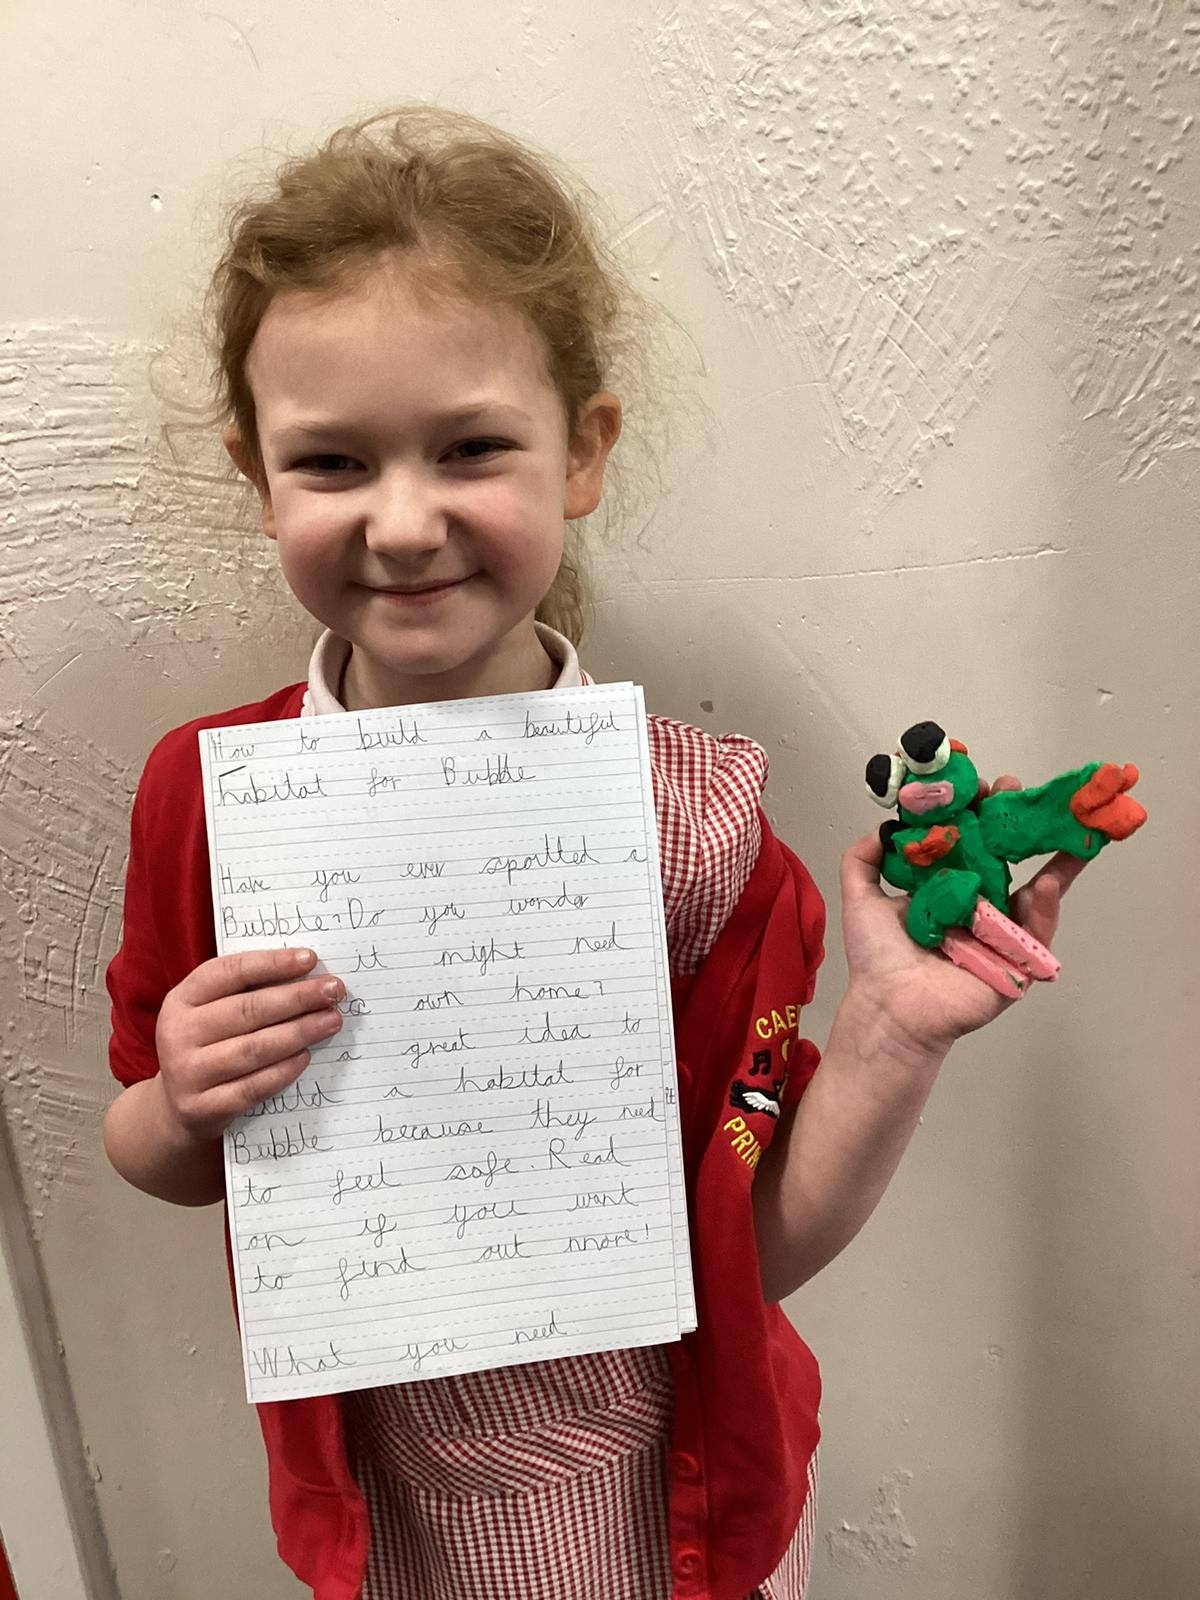 How to build a beautiful
habitat for Bubble
Have you ever spotted a
Bubble? Do you wonder
it might need
own home?
a great idea to
build a habitat for
Bubble because they need
to feel safe. Read
on if you want
to find out more!
What you need.
CAE
PRIM